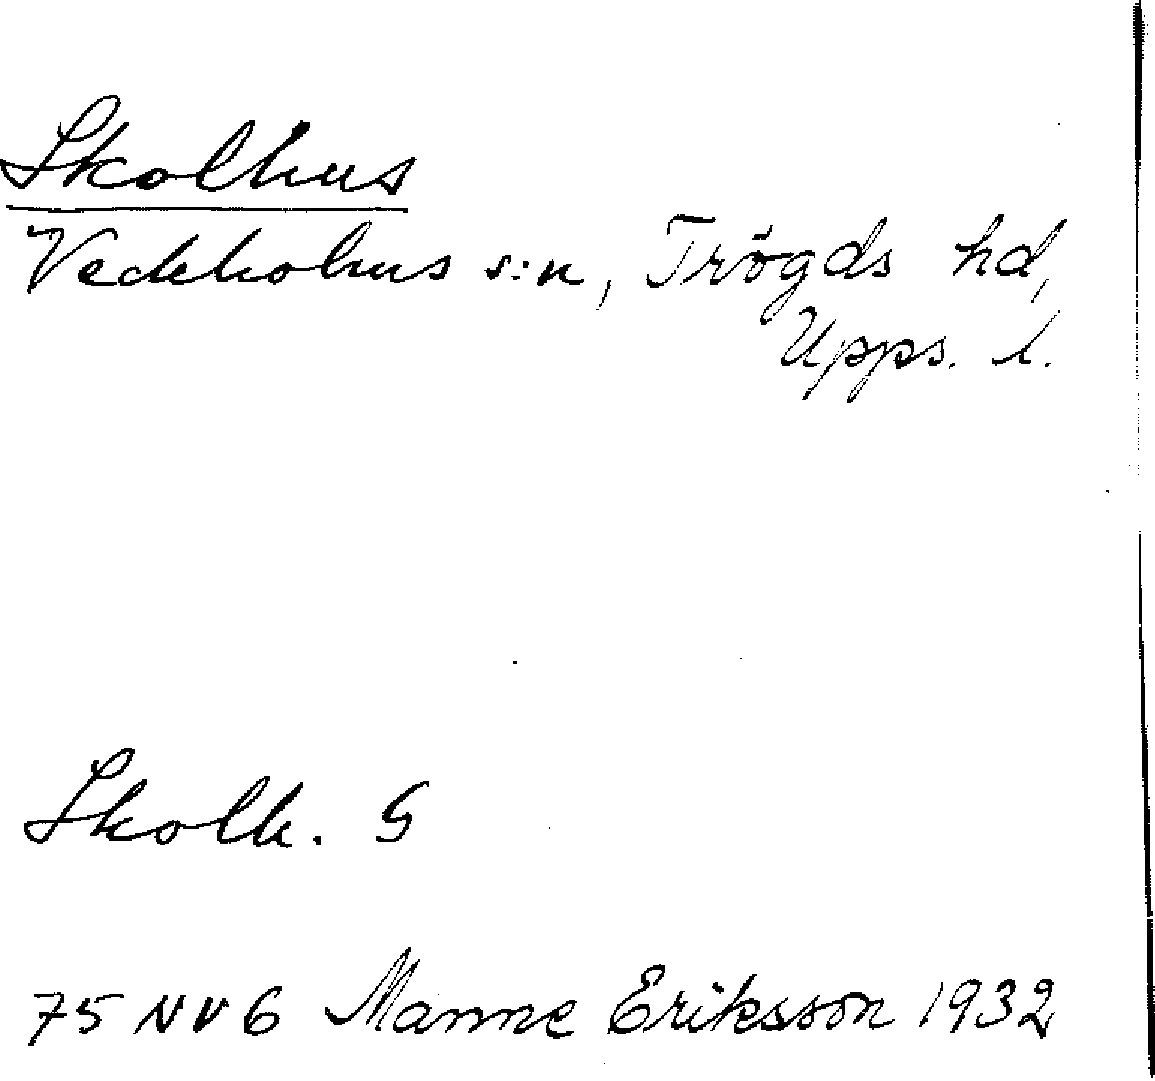 Skolhus
Veckholms s:n, Trögds hd,
Upps. l.
Skolh. S
75 NV 6 Manne Eriksson 1932